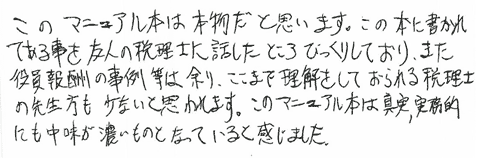 このマニュアル本は本物だと思います。この本に書かれ
てある事を友人の税理士に話したところびっくりしており、また
役員報酬の事例等は余り、ここまで理解をしておられる税理士
の先生方も少ないと思われます。このマニュアル本は真実,実務的
にも中味が濃いものとなっていると感じました。